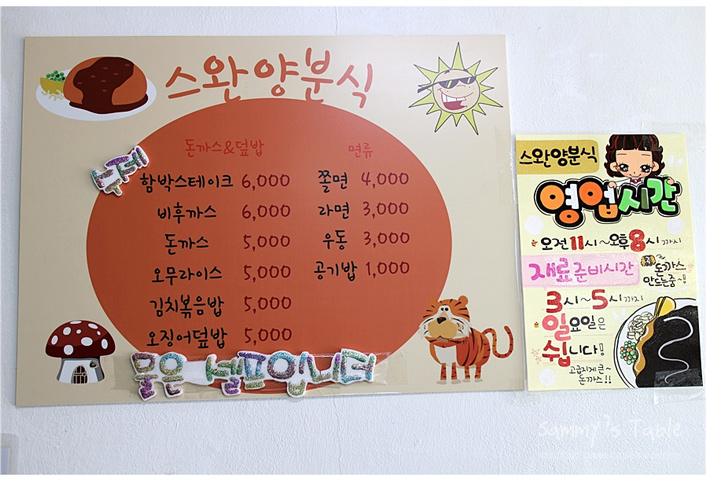 스완양분식
돈까스&덮밥
함박스테이크 6,000
비후까스 6,000
돈까스 5,000
오무라이스 5,000
김치볶음밥 5,000
오징어덮밥 5,000
면류
쫄면 4,000
라면 3,000
우동 3,000
공기밥 1,000
물은 셀프입니다
스완양분식
영업시간
오전 11시~오후 8시까지
재료준비시간
돈까스
만드는중~!!
3시~5시까지
일요일은
쉽니다!
고급지게 큰~
돈까스!!
Sammy's Table